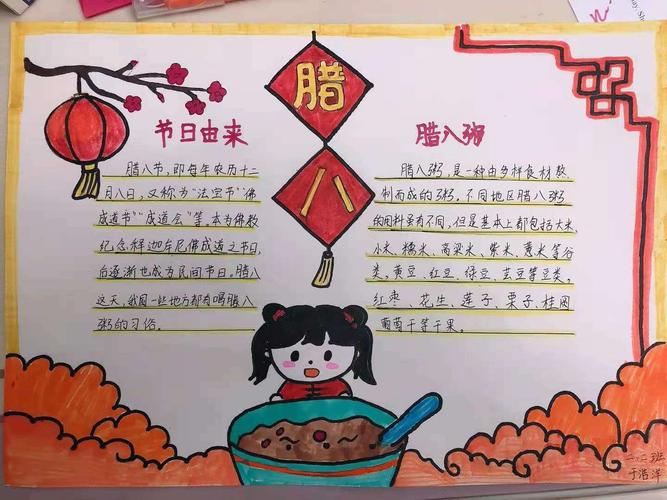 腊
八
节日由来
腊八节,即每年农历十二
月八日,又称为“法宝节”“佛
成道节”“成道会”等。本为佛教
纪念释迦牟尼佛成道之节日,
后逐渐也成为民间节日。腊八
这天,我国一些地方都有喝腊八
粥的习俗。
腊八粥
腊八粥,是一种由多样食材熬
制而成的粥。不同地区腊八粥
的用料虽有不同,但是基本上都包括大米、
小米、糯米、高梁米、紫米、薏米等谷
类,黄豆、红豆、绿豆、芸豆等豆类,
红枣、花生、莲子、栗子、桂圆
葡萄干等干果。
二、二班
于浩洋